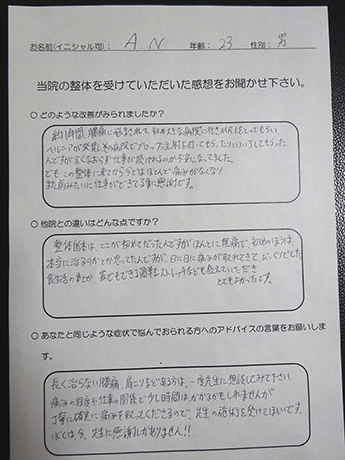 お名前(イニシャル可): A.N 年齢: 23 性別: 男
当院の整体を受けていただいた感想をお聞かせ下さい。
○ どのような改善がみられましたか?
約1年間、腰痛に悩まされて初め大きな病院に行きMRIをとってもらい
ヘルニアが発覚しその病院でブロック注射を打ってもらったりいろいろしてもらった
んですが全くなおらず仕事が続けれるのか不安になってました。
でも、この整体に来てからではほとんど痛みがなくなり
また前みたいに仕事ができてる事に感謝です。
○ 他院との違いはどんな点ですか?
整体自体は、ここが初めてだったんですがほんとに無痛で、初めのほうは、
本当に治るのかと思ってたんですが、日に日に痛みが取れてきて、びっくりでした。
食生活の事とか、家でもできる簡単なストレッチなども教えていただき
とてもよかったです。
○ あなたと同じような症状で悩んでおられる方へのアドバイスの言葉をお願いしま
す。
長く治らない腰痛、肩こりなどある方は、一度先生に相談してみて下さい
痛みの程度や仕事の関係で少し時間はかかるかもしれませんが
丁寧に確実に痛みを取ってくださるので、先生の施術を受けてほしいです。
ぼくは今、先生に感謝しかありません!!